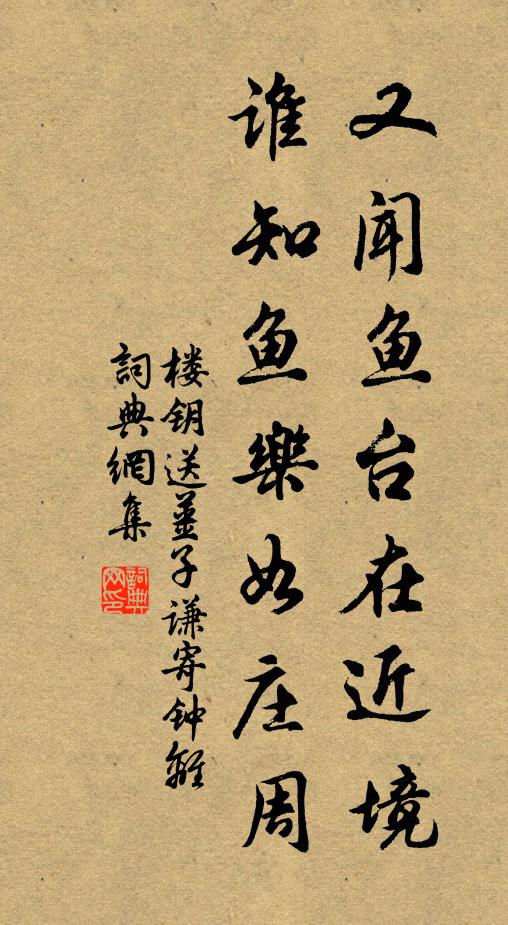 又闻鱼台在近境
谁知鱼樂如庄周
楼钥送姜子谦寄钟離
詞典網集
詞典
网印